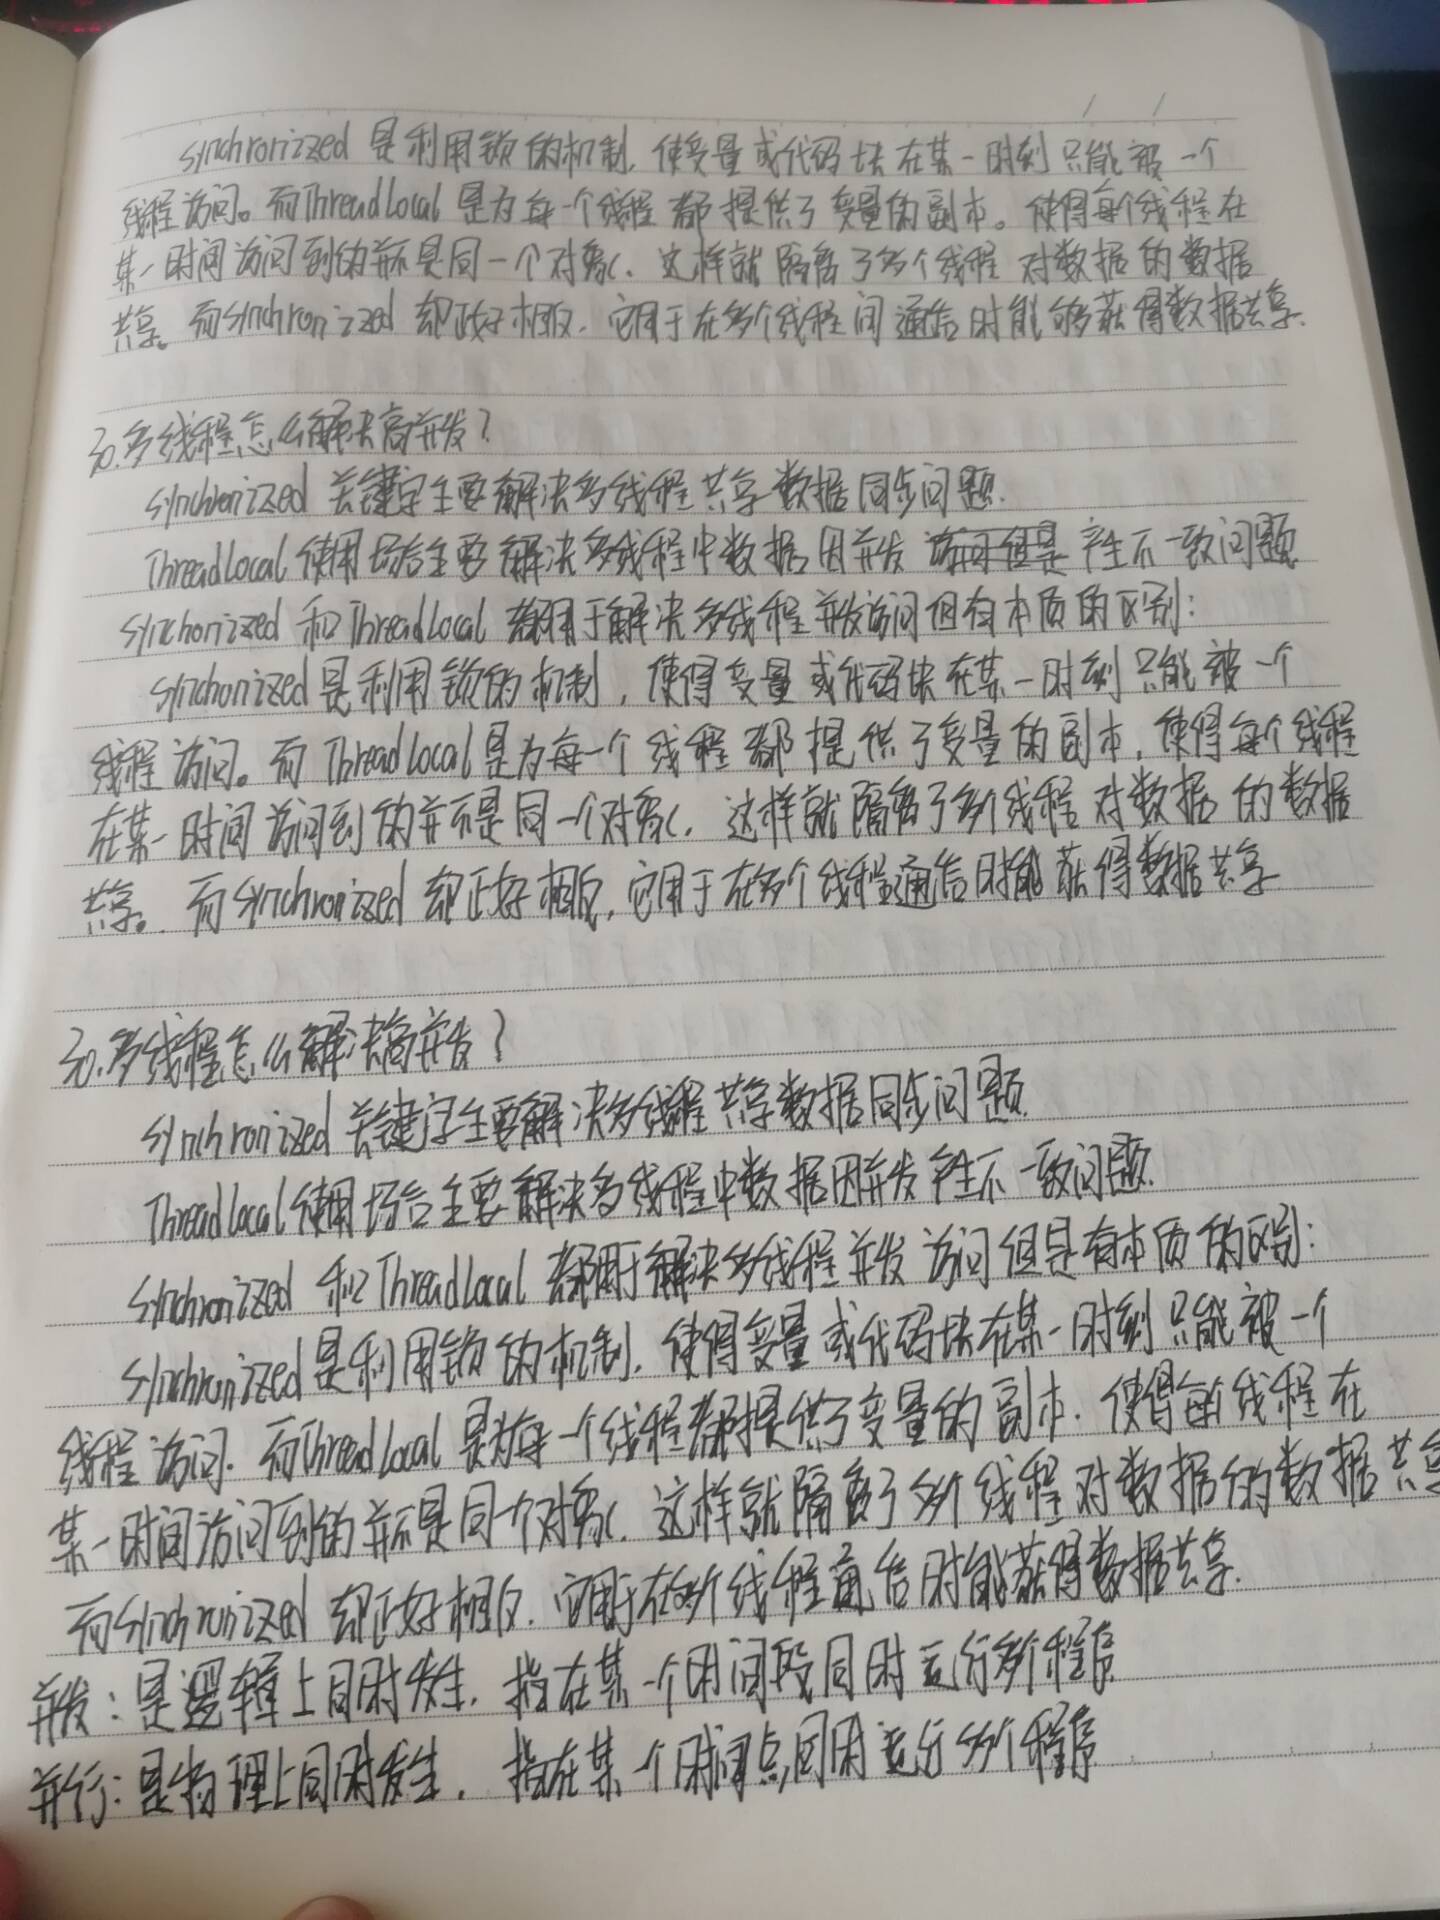 synchronized 是利用锁的机制，使变量或代码块在某一时刻只能被一个
线程访问。而ThreadLocal 是为每一个线程都提供了变量的副本。使得每个线程在
某一时间访问到的并不是同一个对象，这样就隔离了多个线程对数据的数据
共享。而synchronized 却正好相反，它用于在多个线程间通信时能够获得数据共享.
30.多线程怎么解决高并发？
synchronized 关键字主要解决多线程共享数据同步问题.
ThreadLocal 使用场合主要解决多线程中数据因并发 产生不一致问题
synchonized 和ThreadLocal 都用于解决多线程并发访问但有本质的区别：
synchonized是利用锁的机制，使得变量或代码块在某一时刻只能被一个
线程访问。而ThreadLocal是为每一个线程都提供了变量的副本，使得每个线程
在某一时间访问到的并不是同一个对象，这样就隔离了多个线程对数据的数据
共享。而synchronized 却正好相反，它用于在多个线程通信时能获得数据共享
30.多线程怎么解决高并发？
synchronized 关键字主要解决多线程共享数据同步问题.
ThreadLocal使用场合主要解决多线程中数据因并发产生不一致问题.
synchronized 和ThreadLocal 都用于解决多线程并发访问但是有本质的区别：
synchronized是利用锁的机制，使得变量或代码块在某一时刻只能被一个
线程访问.而ThreadLocal 是为每一个线程都提供了变量的副本，使得每个线程在
某一时间访问到的并不是同一个对象，这样就隔离了多个线程对数据的数据共享
而synchronized 却正好相反，它用于在多个线程通信时能获得数据共享.
并发：是逻辑上同时发生，指在某一个时间段同时运行多个程序
并行：是物理上同时发生，指在某一个时间点同时运行多个程序